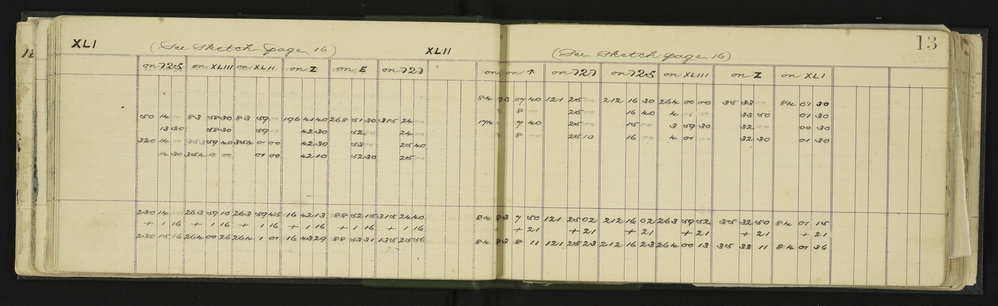 XLI (See Sketch page 16)
on 725 on XLIII on XLII on Z on E on 727
50 14 — 83 58 30 83 59 — 196 41 40 268 51 30 315 24 —
13 30 58 30 59 — 42 30 52 — 24 —
320 14 — 353 59 40 354 0 00 42 30 53 — 25 40
14 30 354 0 00 01 00 42 10 52 30 25 —
230 14 — 263 59 10 263 59 45 16 42 13 88 52 15 315 24 40
+ 1 16 + 1 16 + 1 16 + 1 16 + 1 16 + 1 16
230 15 16 264 00 26 264 1 01 16 43 29 88 53 31 135 25 56
XLII (See Sketch page 16) 13
on ↑ on 727 on 725 on XLIII on Z on XLI
07 40 121 25 — 212 16 30 264 00 00 35 33 — 84 01 30
8 — 25 — 16 40 4 — 33 50 01 30
174 7 40 25 — 15 — 3 59 30 32 — 00 30
8 — 25 10 16 — 4 01 — 32 30 01 30
7 50 121 25 02 212 16 02 263 59 52 35 32 50 84 01 15
+ 21 + 21 + 21 + 21 + 21 + 21
8 11 121 25 23 212 16 23 264 00 13 35 33 11 84 01 36